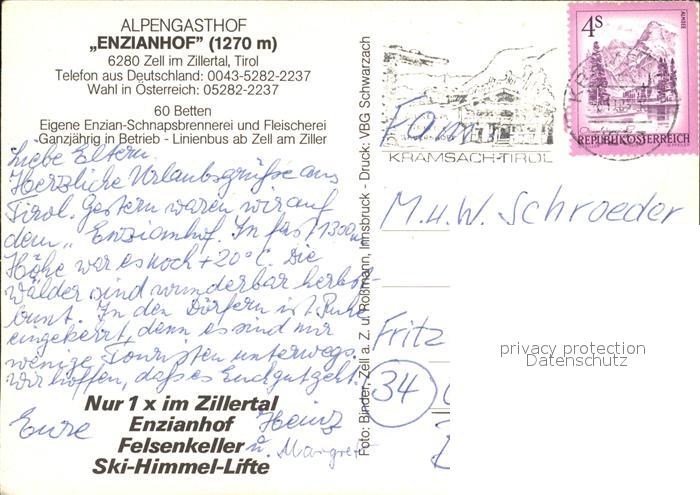 ALPENGASTHOF
„ENZIANHOF” (1270 m)
6280 Zell im Zillertal, Tirol
Telefon aus Deutschland: 0043-5282-2237
Wahl in Österreich: 05282-2237
60 Betten
Eigene Enzian-Schnapsbrennerei und Fleischerei
Ganzjährig in Betrieb - Linienbus ab Zell am Ziller
Liebe Eltern.
Herzliche Urlaubsgrüße aus
Tirol. Gestern waren wir auf
dem „Enzianhof. In fast 1300m
Höhe war es noch +20°C. Die
Wälder sind wunderbar herbst-
bunt. In den Dörfern ist Ruhe
eingekehrt, denn es sind nur
wenige Touristen unterwegs.
Wir hoffen, daß es Euch gut geht.
Eure Heinz
u. Margret
Nur 1 x im Zillertal
Enzianhof
Felsenkeller
Ski-Himmel-Lifte
Foto: Binder, Zell a. Z. u. Roßmann, Innsbruck - Druck: VBG Schwarzach
KRAMSACH-TIROL
4S
ALMSEE
REPUBLIK ÖSTERREICH
Fam.
M. u. W. Schroeder
Fritz
34
privacy protection
Datenschutz